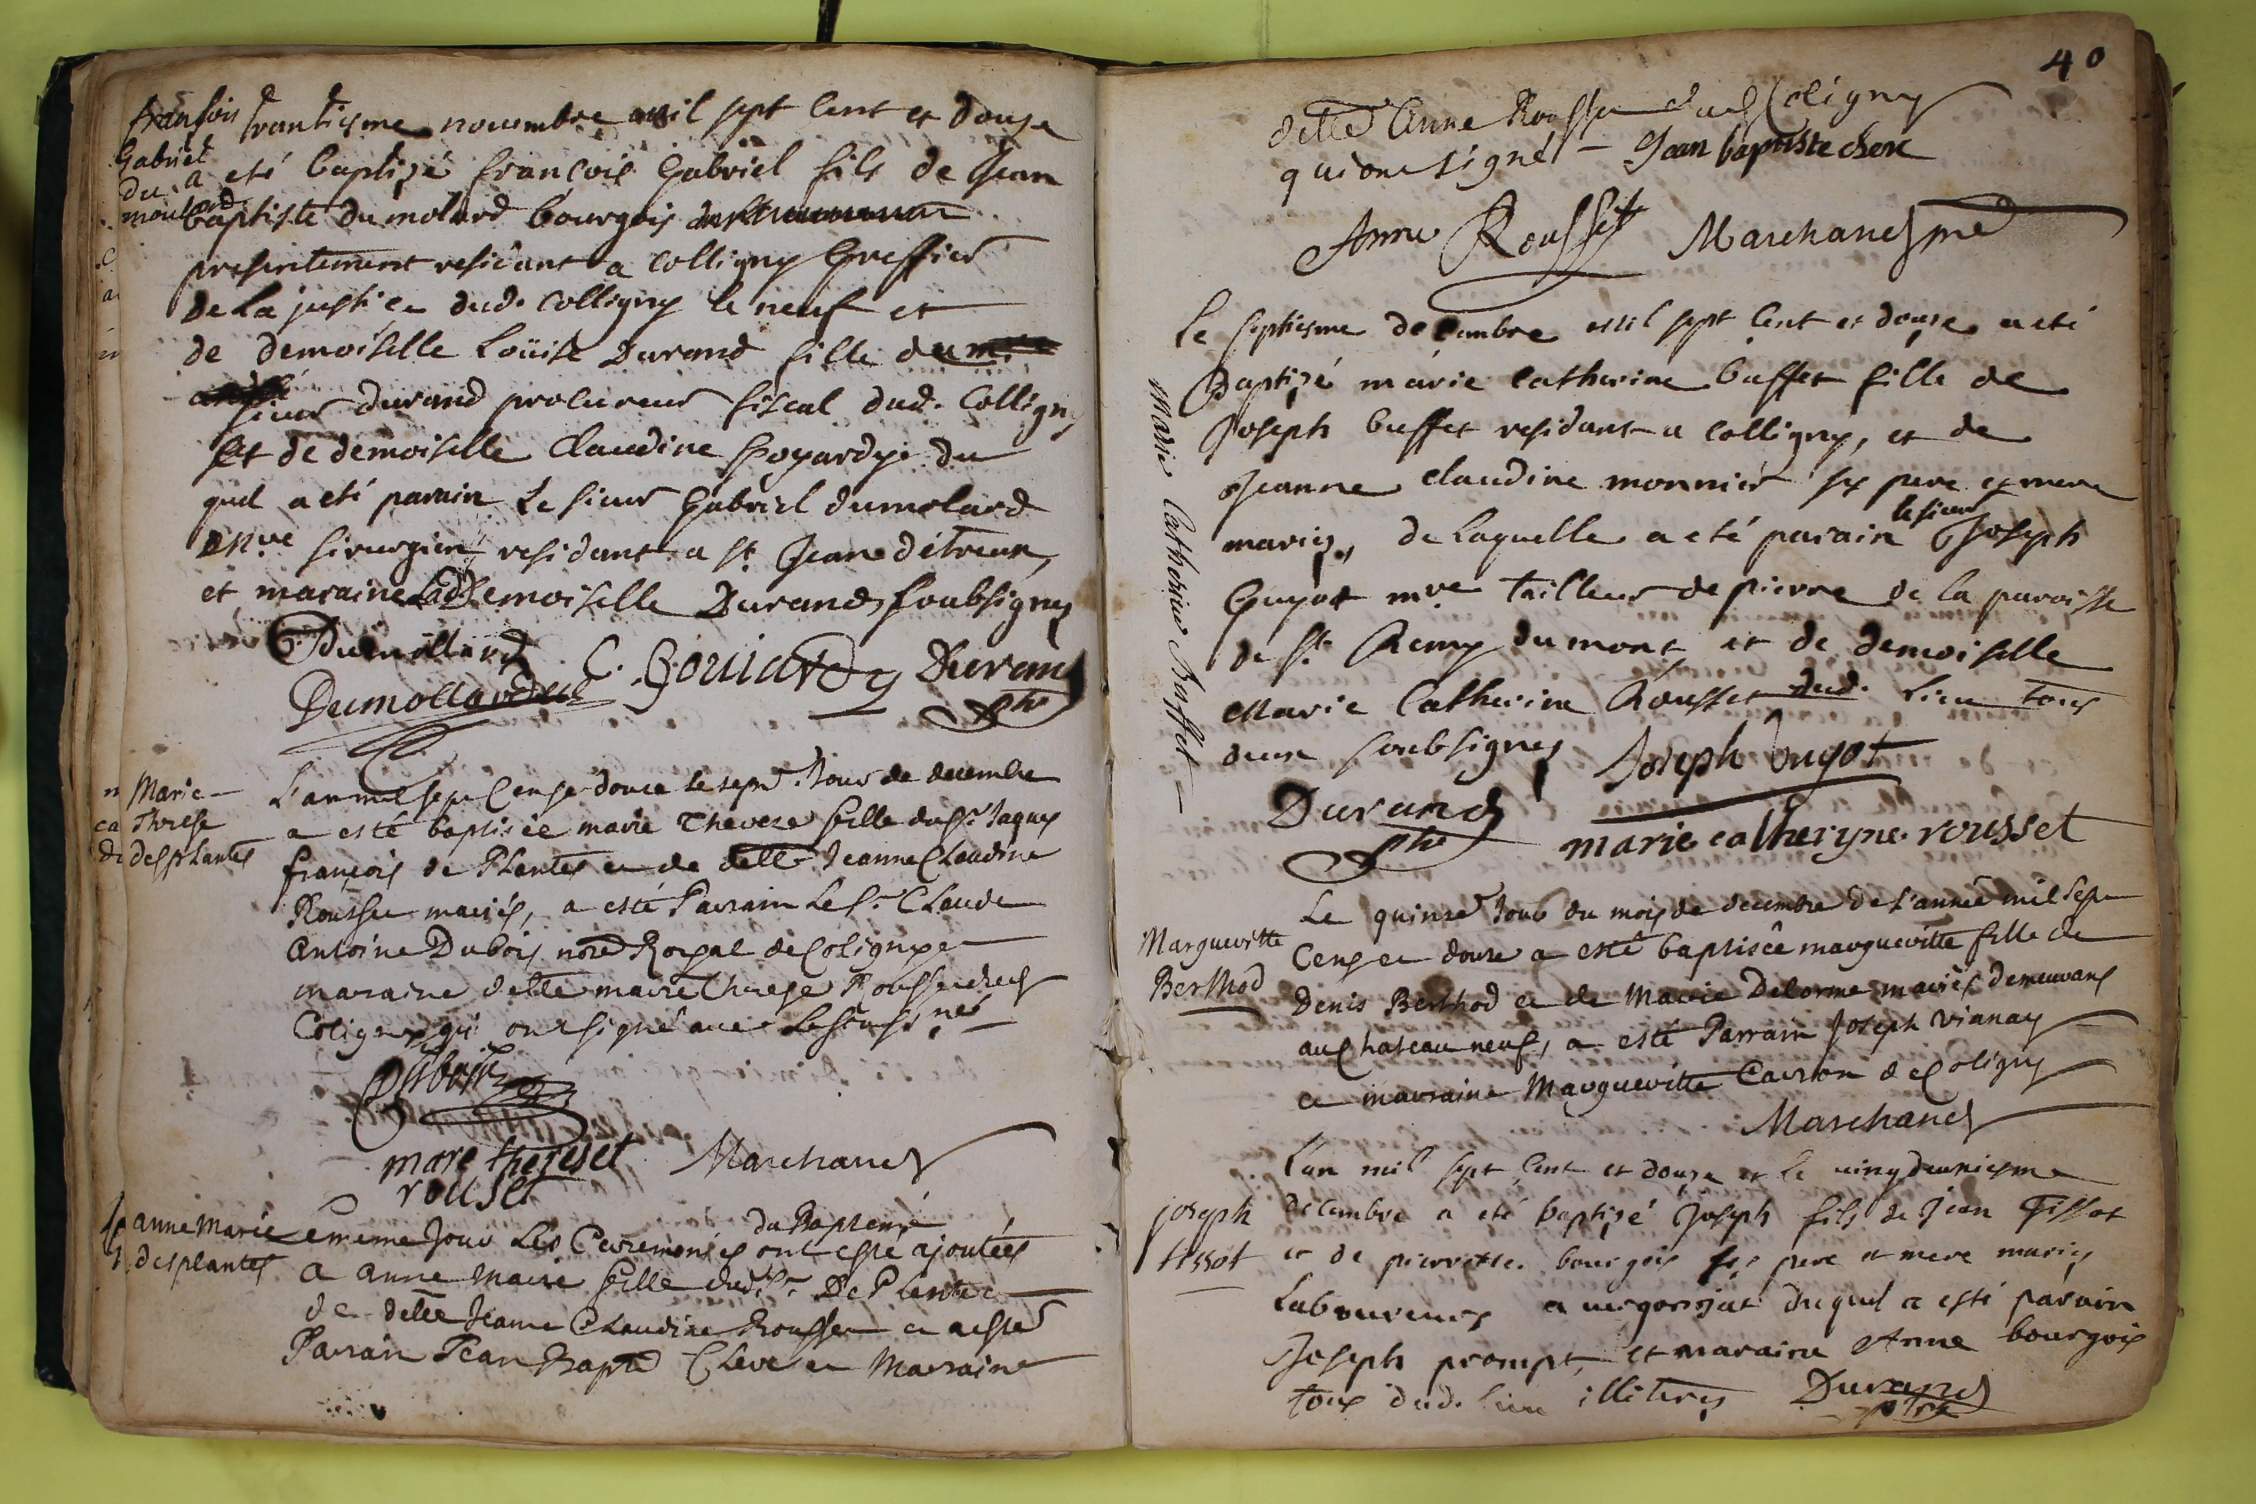 françois
Gabriel
du
moulard
trantiesme novembre mil sept cent et douze
a eté baptizé françois Gabriel fils de Jean
baptiste du molard bourgois
presentement residant a colligny Greffier
de La justice dud. colligny le neuf et
de demoiselle Loüise Durand fille de
sieur durand procureur fiscal dud. Colligny
et de demoiselle Claudine du
quel a eté parain Le sieur Gabriel dumolard
sirurgien residant a st. Jean détreux,
et maraine demoiselle Durand soubsignes
Dumollard C. Durand
Dumollard ptre
Marie
Threse
desplantes
L'an mil sept cens et douze le sept. Jour de decembre
a esté baptisée marie Therese fille du Sr. Jaques
françois de Plantes et de delle Jeanne Claudine
Rousset mariés, a esté Parrain Le Sr. Claude
Antoine Dubois nore Royal de Coligny et
maraine delle marie Therese Rousset dud
Coligny qui ont signé avec Le soussiné
Dubois
mare thereset Marchand
rouset
anne Marie
desplantes
Le meme Jour Les Ceremonies du Bapteme ont esté ajoutées
a anne marie fille dud. Sr. De Plantes
de delle Jeanne Claudine Rousset et a esté
Parrain Jean Bapte Clere et Marraine
40
delle Anne Rousset dud Coligny
qui ont signé Jean baptiste clere
Anne Rousset Marchand
Le septiesme decembre mil sept cent et douze a eté
Baptizé marie catherine buffet fille de
Joseph buffet residant a colligny, et de
Jeanne claudine monnier ses pere et mere
mariez, de Laquelle a eté parain le sieur Joseph
Guyot mre tailleur de pierre de la paroisse
de St. Remy du mont et de demoiselle
Marie Catherine Rousset dud. Lieu tous
deux soubsignes Joseph Guyot
Durand
ptre marie catheryne rousset
Marie Catherine Buffet
Margueritte
Berthod
Le quinze Jour du mois de decembre de l'année mil sept
Cens et douze a esté baptisée margueritte fille de
Denis Berthod et de Marie Delorme mariés demeurans
au Chateau neuf, a esté Parrain Joseph vianay
et marraine Margueritte Carron de Coligny
Marchand
joseph
tissot
L'an mil sept cent et douze et le vingdeuxiesme
decembre a eté baptizé Joseph fils de Jean Tissot
et de pierrette bourgois ses pere et mere mariez
Laboureurs a duquel a esté parain
Joseph prompt, et maraine Anne bourgois
tous dud. lieu illiteres Durand
ptre